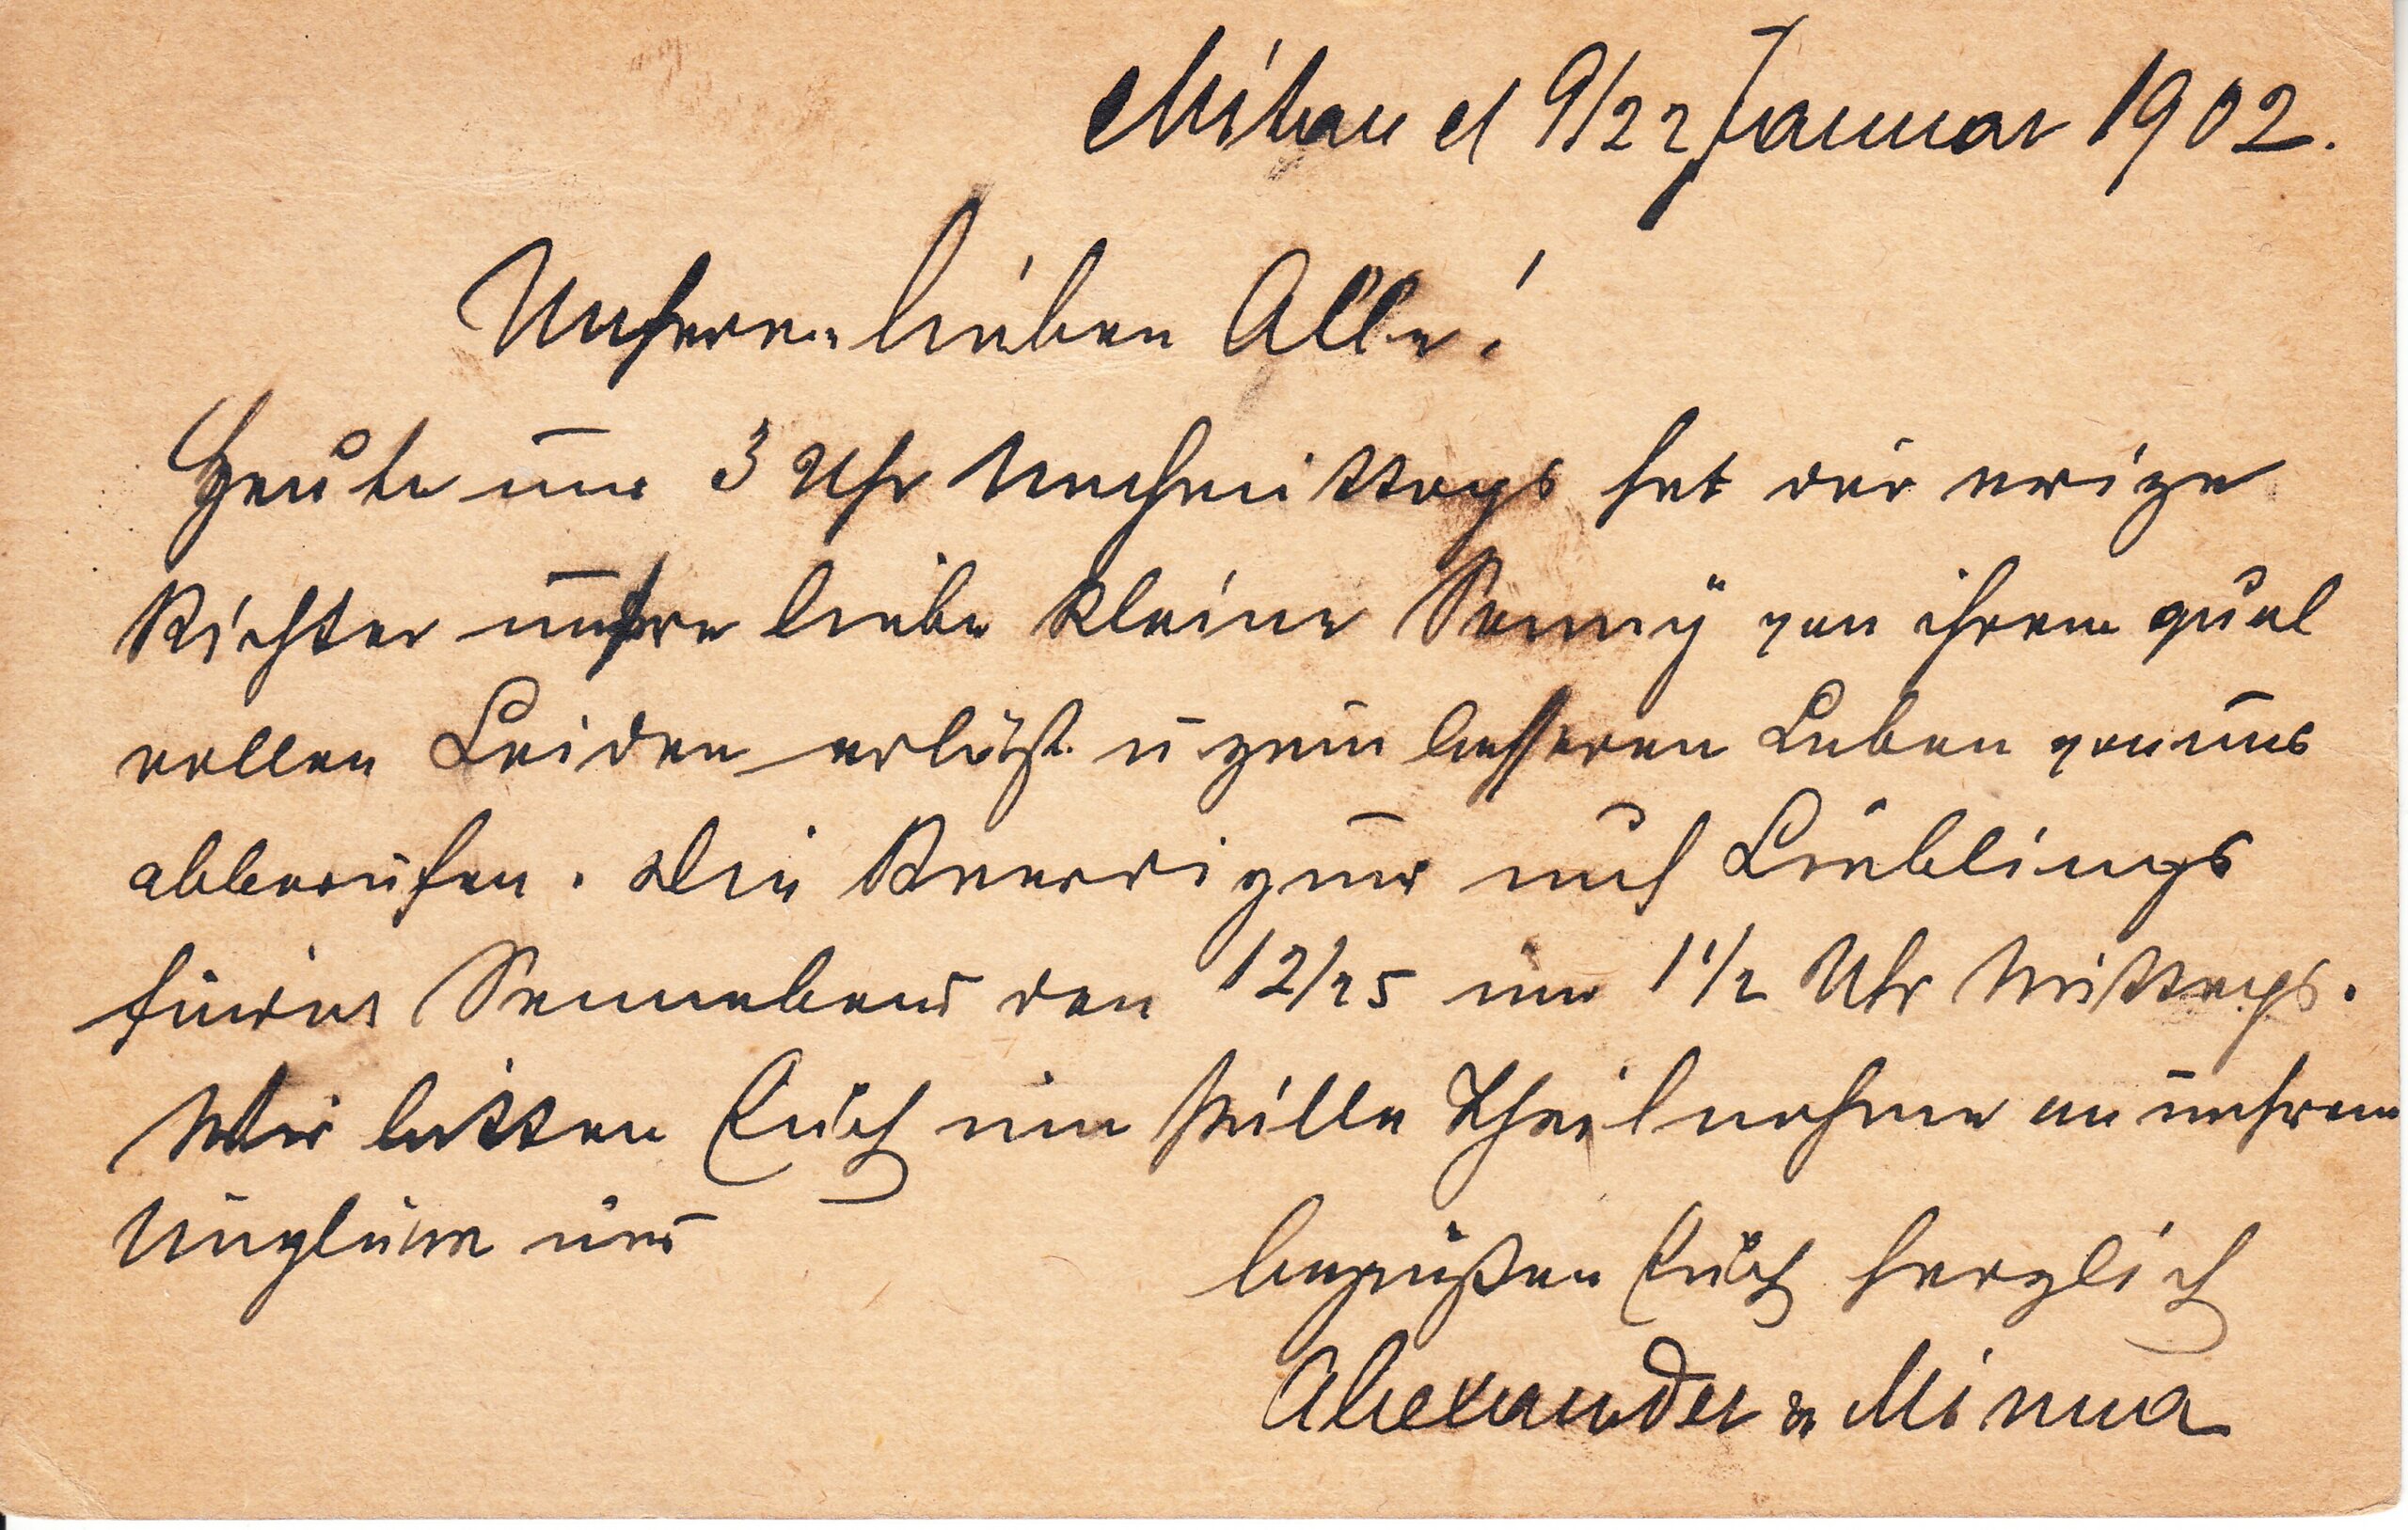 Mitau d 9/22 Januar 1902.
Unsere lieben Alle!
Heute um 3 Uhr Nachmittags hat der ewige
Richter unsere liebe kleine Jenny von ihrem qual
vollen Leiden erlöst u zum besseren Leben von uns
abberufen. Die Beerdigung uns Lieblings
findet Sonnabend den 12/25 um 1 1/2 Uhr Mittags.
Wir bitten Euch um stille Theilnahme an unserem
Unglück und
begrüßen Euch herzlich
Alexander & Minna